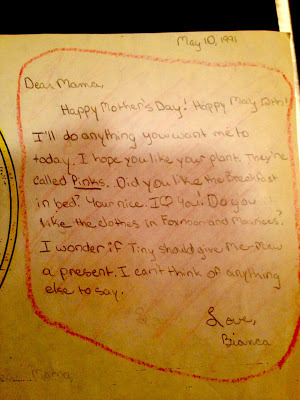 May 10, 1991
Dear Mama,
Happy Mother's Day! Happy May 12th!!
I'll do anything you want me to
today. I hope you like your plant. They're
called Pinks. Did you like the breakfast
in bed? Your nice. I ♡ You! Do you
like the clothes in Foxmoor and Maurices?
I wonder if Tiny should give me-mew
a present. I can't think of anything
else to say.
Love,
Bianca
Mama,